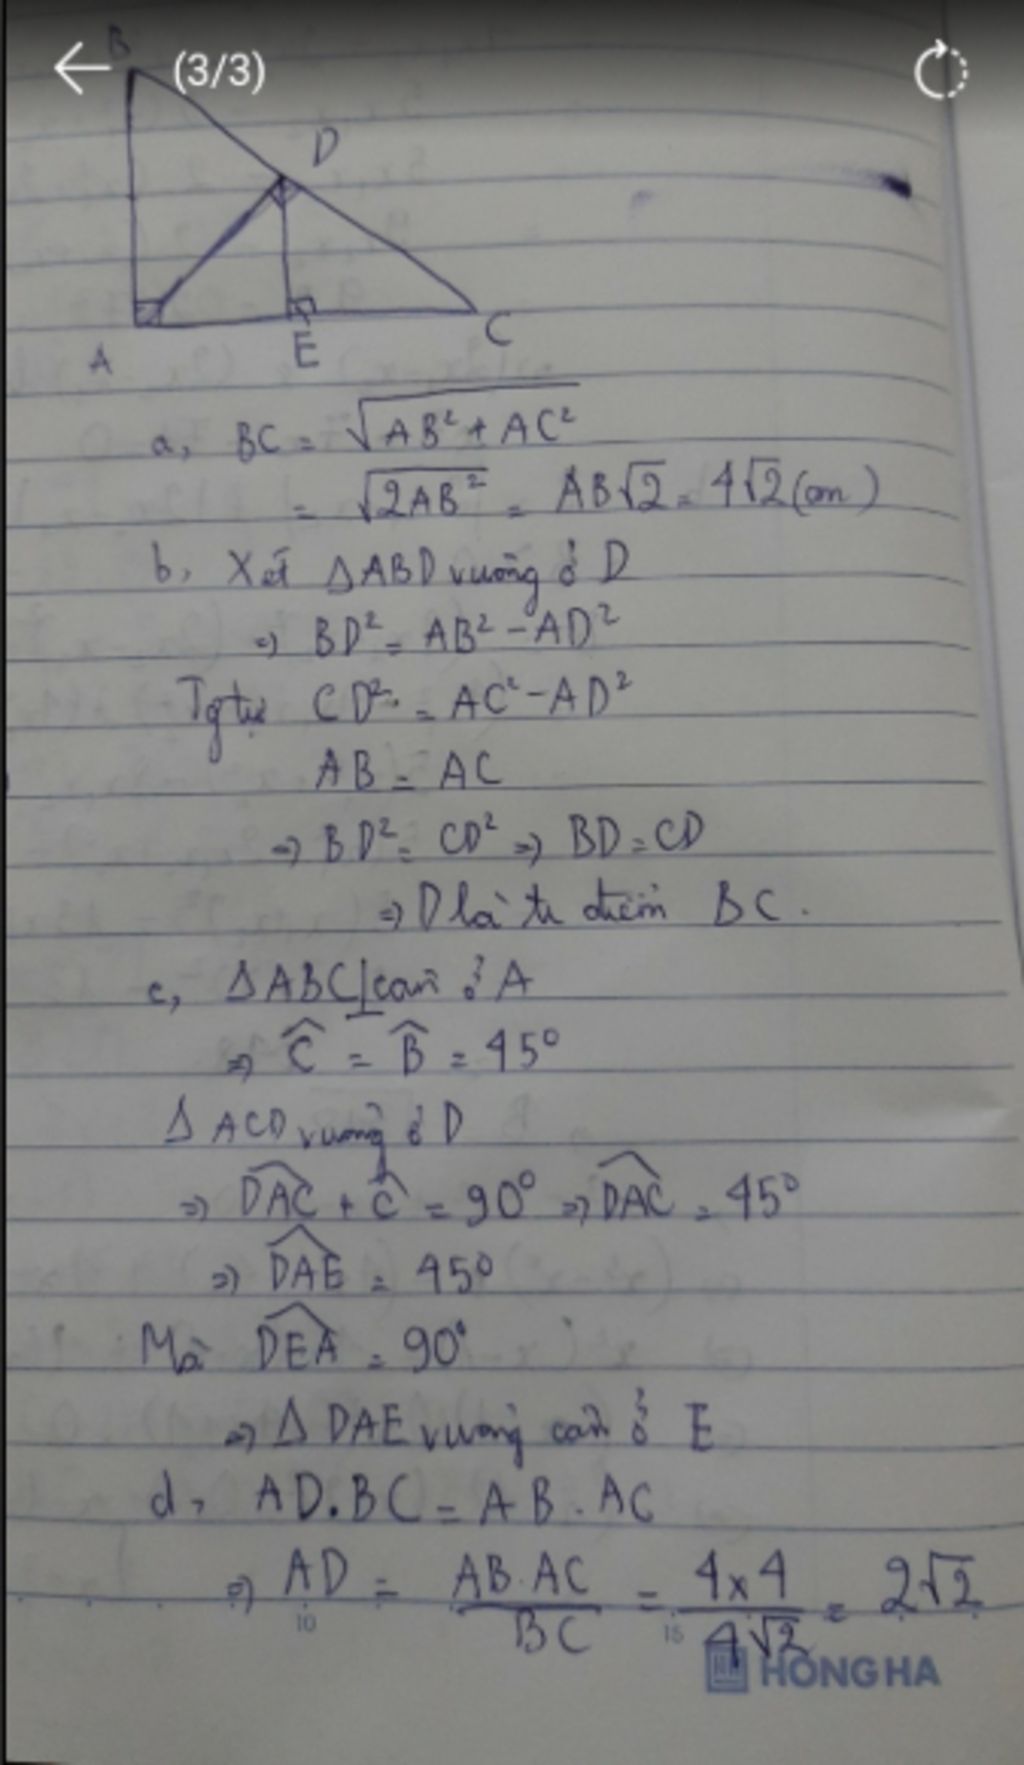 B
(3/3)
D
A
E
C
a, BC = √AB² + AC²
= √2AB² = AB√2 = 4√2 (cm)
b, Xét ΔABD vuông ở D
=> BD² = AB² - AD²
Tgtự CD² = AC² - AD²
AB = AC
=> BD² = CD² => BD = CD
=> D là tr điểm BC.
c, ΔABC ⊥ cân ở A
=> Ĉ = B̂ = 45°
Δ ACD vuông ở D
=> \widehat{DAC} + Ĉ = 90° => \widehat{DAC} = 45°
=> \widehat{DAE} = 45°
Mà \widehat{DEA} = 90°
=> Δ DAE vuông cân ở E
d, AD.BC = AB.AC
=> AD = AB.AC / BC = 4x4 / 4√2 = 2√2
10 15
HONG HA